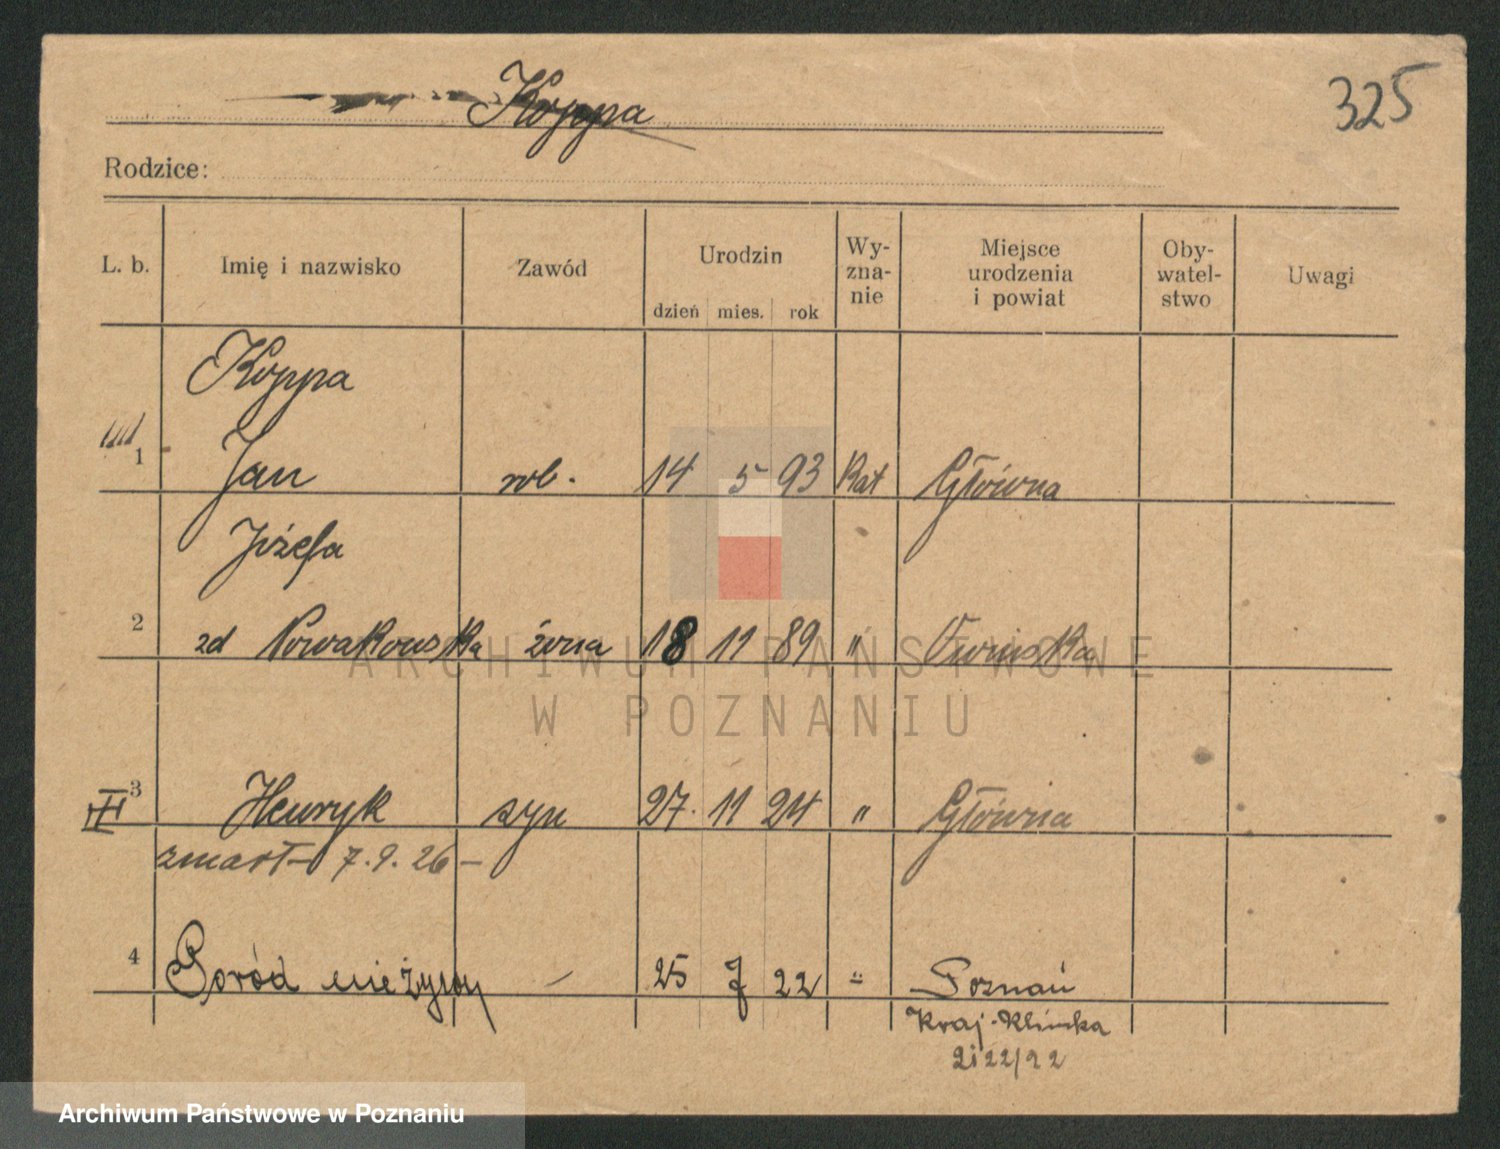 Koppa
325
Rodzice:
L. b. Imię i nazwisko Zawód Urodzin Wy-zna-nie Miejsce urodzenia i powiat Oby-watel-stwo Uwagi
dzień mies. rok
Koppa
1 Jan rob. 14 5 93 Kat Główna
Józefa
2 zd Nowakowska żona 18 11 89 " Owinska
ARCHIWUM PAŃSTWOWE
W POZNANIU
III 3 Henryk syn 27. 11 24 " Główna
zmarł – 7.9.26 –
4 Poród nieżywy – 25 7 22 " Poznań
Kraj. Klinska
2i22/22
Archiwum Państwowe w Poznaniu